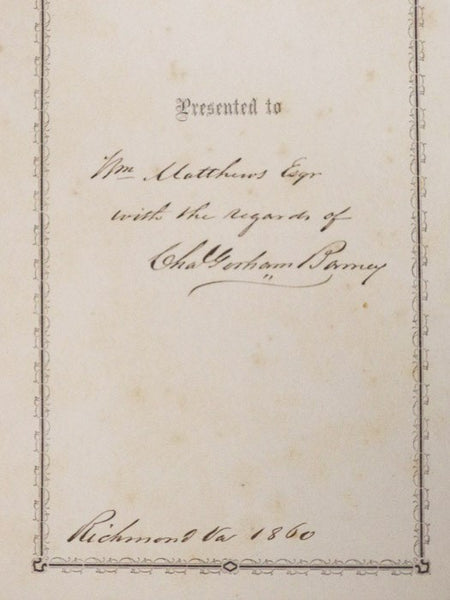 Presented to
Wm Matthews Esqr
with the regards of
Chas Gorham Barney
Richmond Va 1860